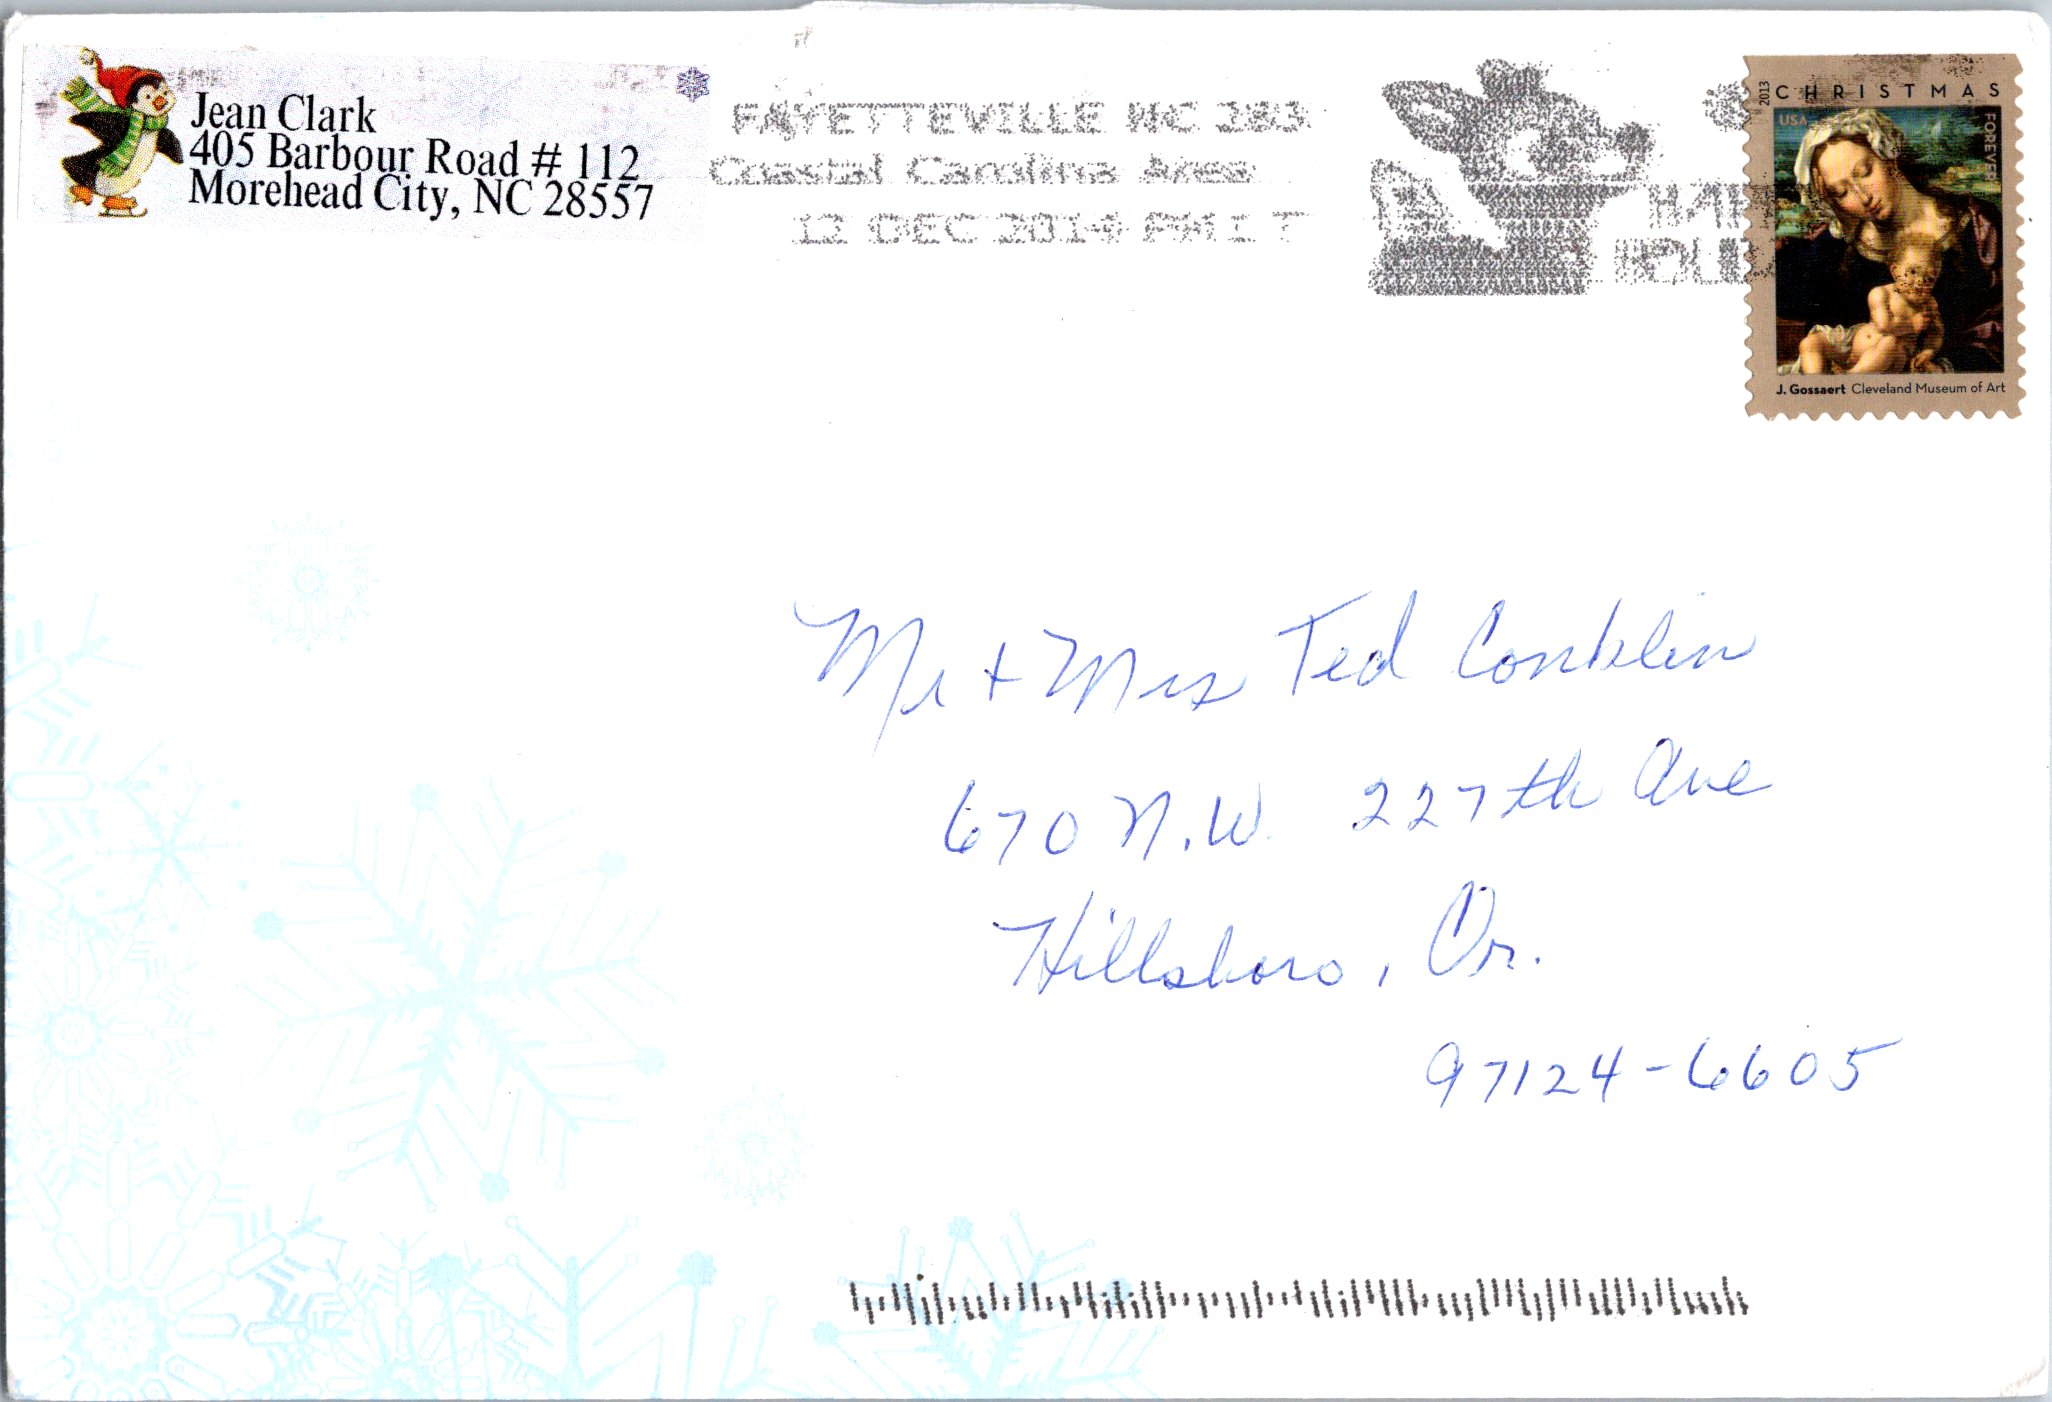 Jean Clark
405 Barbour Road # 112
Morehead City, NC 28557
FAYETTEVILLE NC 283
Coastal Carolina Area
12 DEC 2014 PM 1 T
2013
CHRISTMAS
USA
FOREVER
J. Gossaert Cleveland Museum of Art
Mr + Mrs Ted Conklin
670 N.W. 227th Ave
Hillsboro, Or.
97124-6605